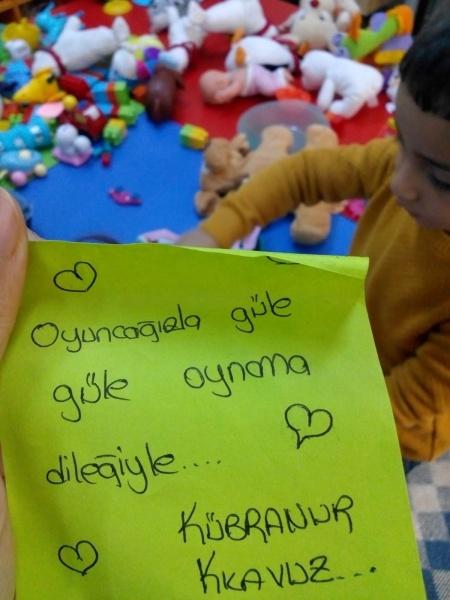 Oyuncağızla güle
güle oynama
dileğiyle....
KÜBRANUR
KKAVUZ...